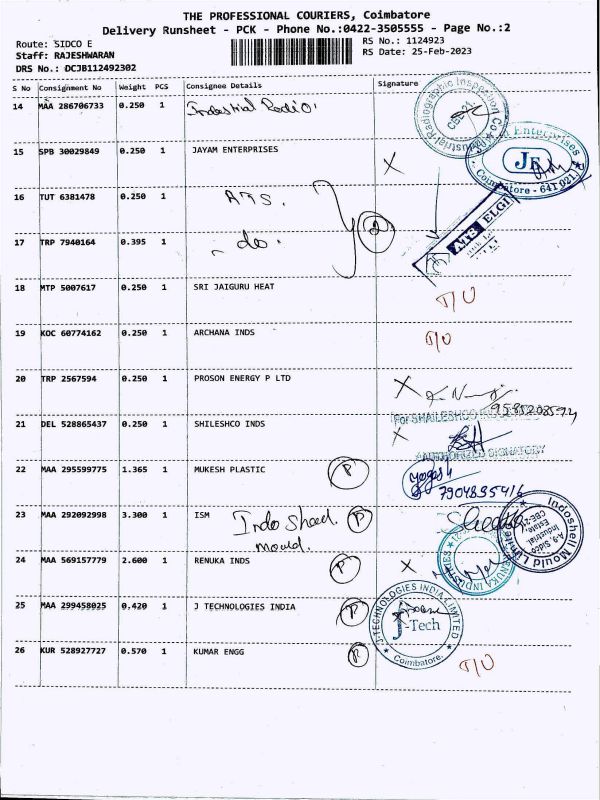 THE PROFESSIONAL COURIERS, Coimbatore
Delivery Runsheet - PCK - Phone No.:0422-3505555 - Page No.:2
Route: SIDCO E
RS No.: 1124923
Staff: RAJESHWARAN
RS Date: 25-Feb-2023
DRS No.: DCJB112492302
S No Consignment No Weight PCS Consignee Details Signature
14 MAA 286706733 0.250 1 Indastrial Radio
Industrial Radiographic Inspection Co
15 SPB 30029849 0.250 1 JAYAM ENTERPRISES X
Enterprises
JE
Coimbatore - 641 021
16 TUT 6381478 0.250 1 ATS.
2
17 TRP 7940164 0.395 1 - do.
ATS ELGI
18 MTP 5007617 0.250 1 SRI JAIGURU HEAT T/U
19 KOC 60774162 0.250 1 ARCHANA INDS T/U
20 TRP 2567594 0.250 1 PROSON ENERGY P LTD X
21 DEL 528865437 0.250 1 SHILESHCO INDS X
For SHAILESHCO
AUTHORIZED SIGNATORY
22 MAA 295599775 1.365 1 MUKESH PLASTIC P
yogesh
7904895416
23 MAA 292092998 3.300 1 ISM Indo Shell P
Mould.
Indoshell Mould Limited
A-9, Sidco
Industrial
Estate,
24 MAA 569157779 2.600 1 RENUKA INDS P X
RENUKA INDUSTRIES
25 MAA 299458025 0.420 1 J TECHNOLOGIES INDIA P
J-TECHNOLOGIES INDIA LIMITED
J-Tech
Coimbatore.
26 KUR 528927727 0.570 1 KUMAR ENGG P T/U